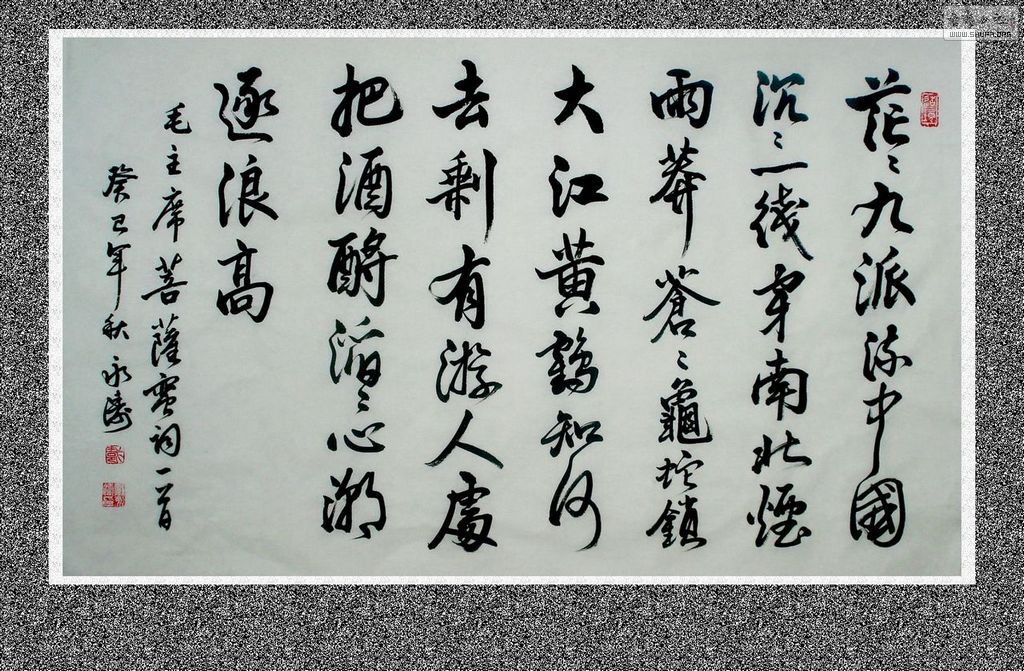 茫〻九派流中國
沉〻一綫穿南北煙
雨莽蒼〻龜蛇鎖
大江黄鶴知何
去剩有游人處
把酒酹滔〻心潮
逐浪高
毛主席菩薩蛮詞一首
癸巳年秋永濤
WWW.SHUFA.ORG